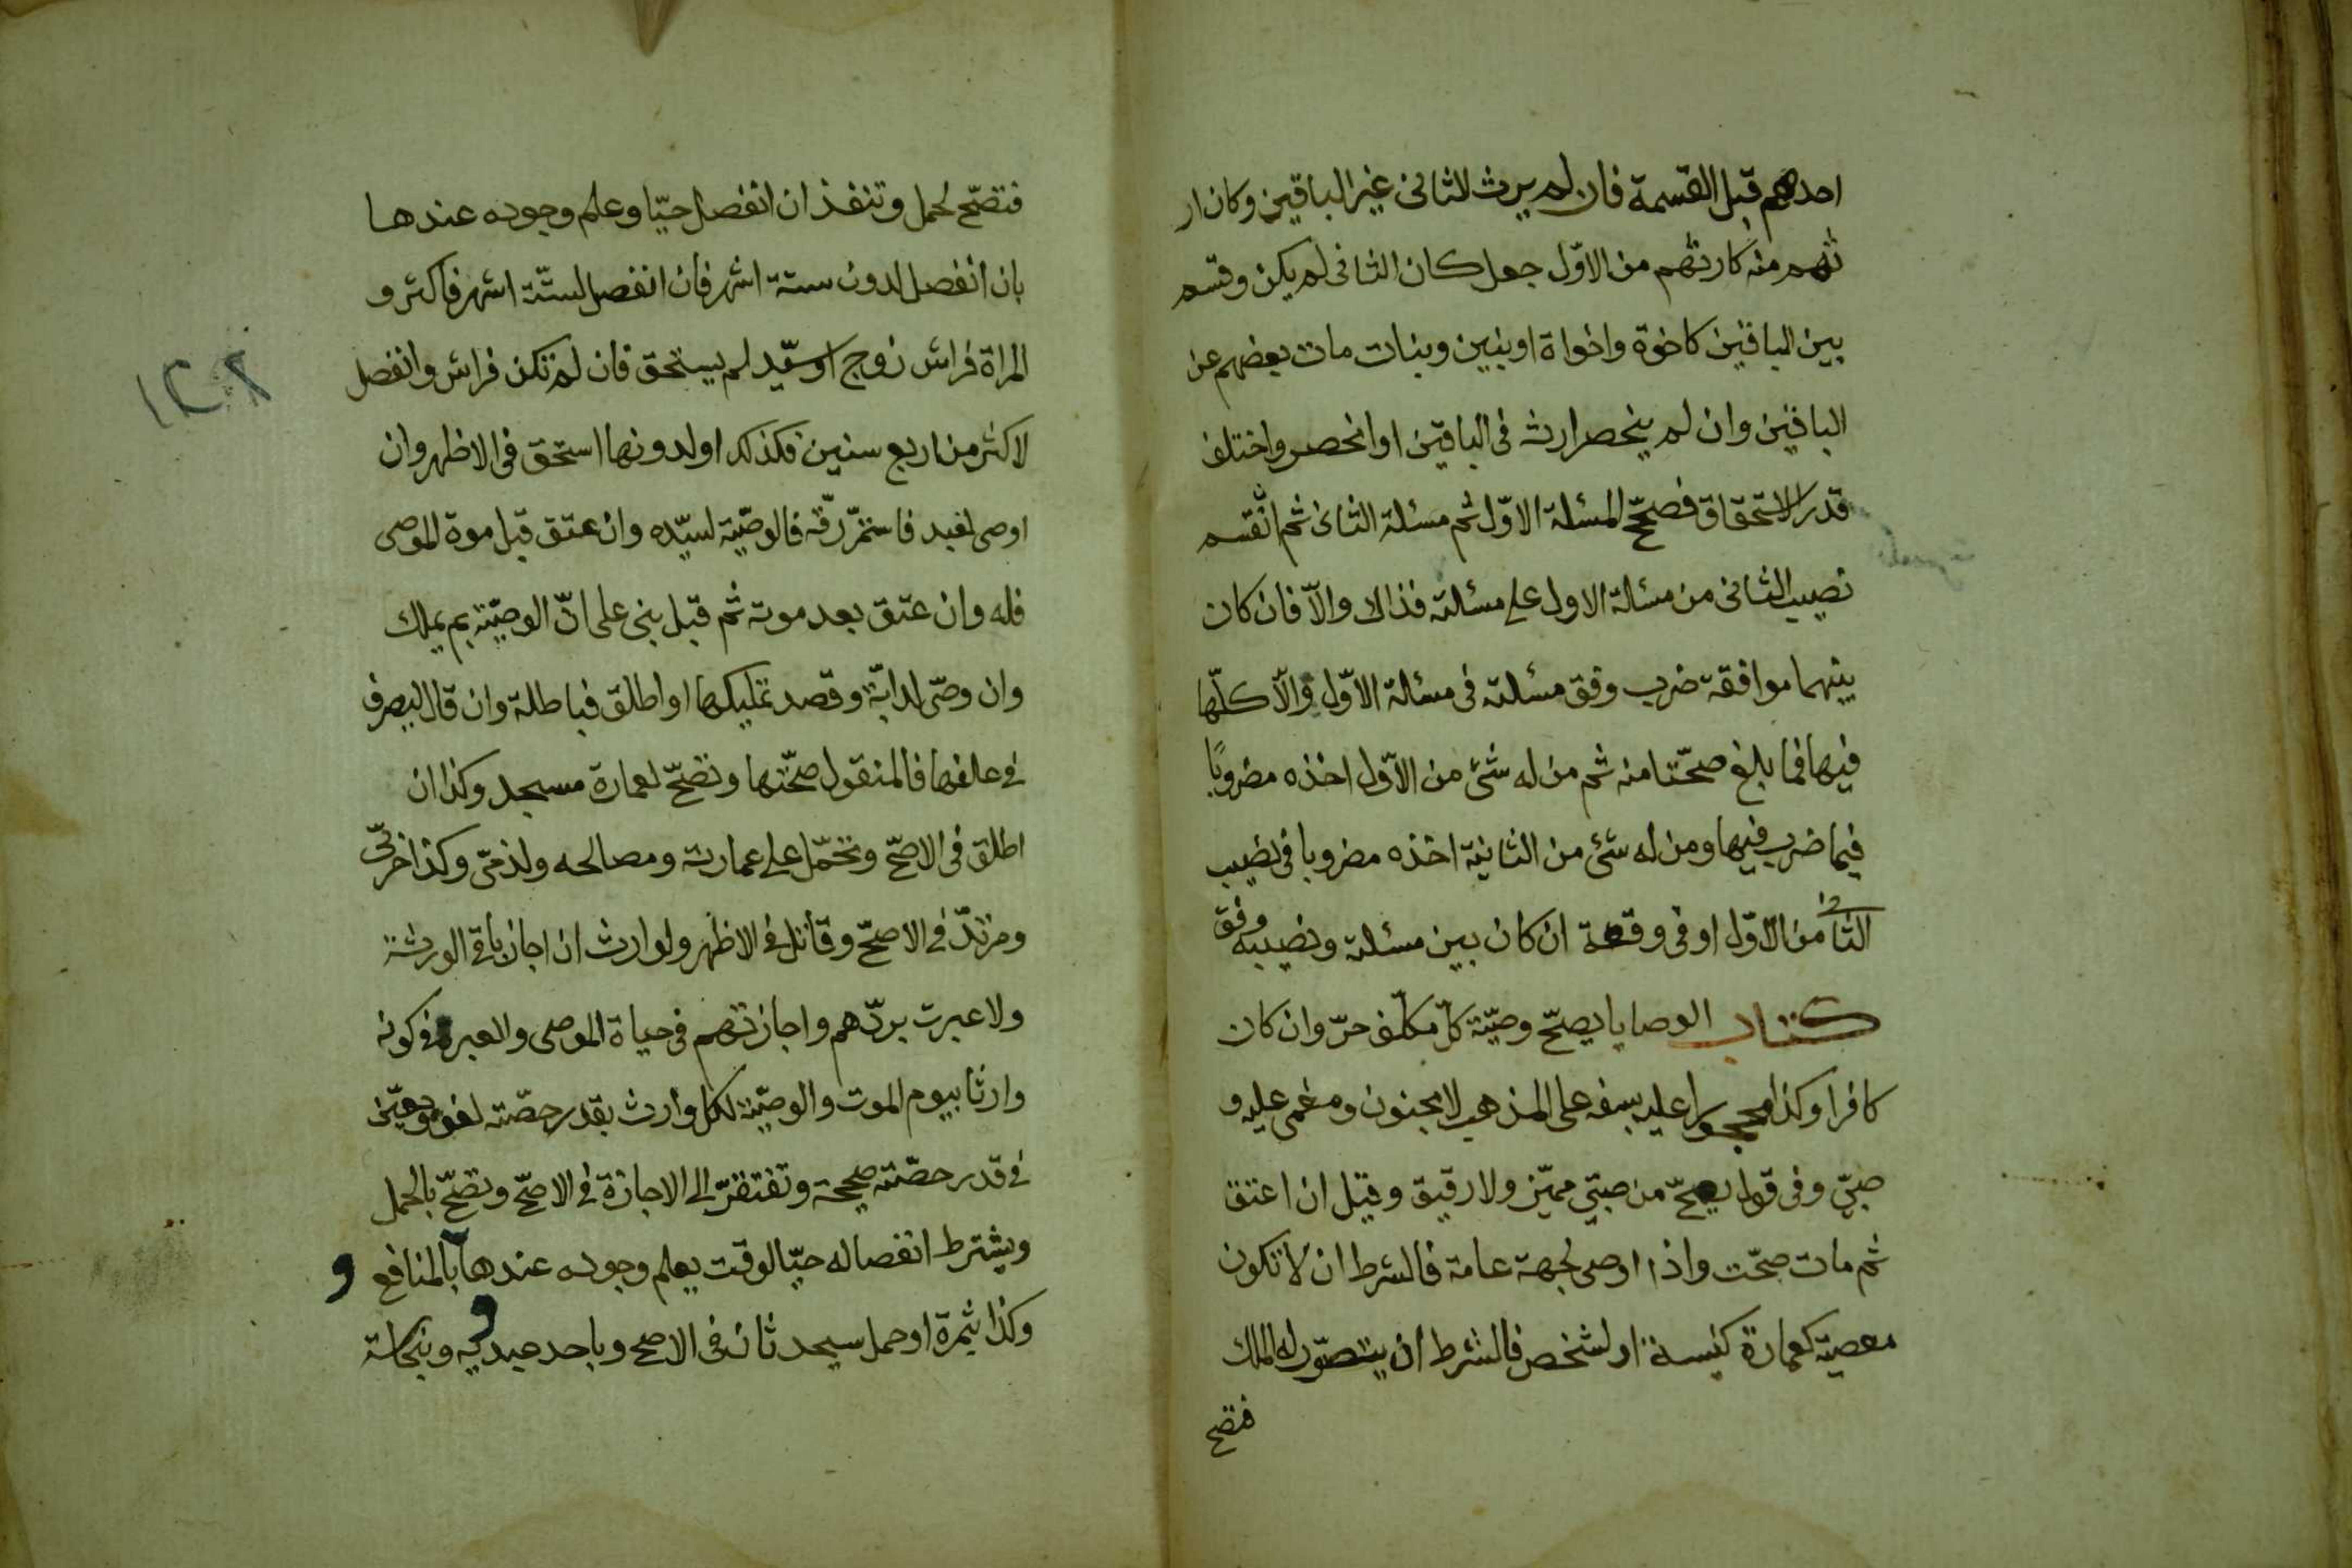 احدهم قبل القسمة فان لم يرث لثانى غير الباقين وكان ار
ثهم منه كارثهم من الاوّل جعل كان الثانى لم يكن وقسم
بين الباقين كاخوة واخواة او بنين وبنات مات بعضهم عن
الباقين وان لم ينحصر ارثه فى الباقين او انحصر واختلف
قدر الاستحقاق فصحّح المسئلة الاوّل ثم مسئلة الثانى ثم انقسم
نصيب الثانى من مسئالة الاول على مسئلته فذالا والاّ فان كان
بينهما موافقة ضرب وفق مسئلته فى مسئالة الاوّل والاّ كلّها
فيها فما بلغ صحّتا منه ثم من له شئ من الاوّل اخذه مضروبًا
فيما ضرب فيها ومن له شئ من الثانية اخذه مضروبا فى نصيب
الثانى من الاوّل او فى وفقه ان كان بين مسئلته ونصيبه وفق
كتاب الوصايا يصحّ وصيّة كلّ مكلّف حرّ وان كان
كافرا وكذا محجورا عليه بسفه على المذهب لا مجنون ومغمى عليه و
صبىّ وفى قول يصحّ من صبىّ مميّز ولا رقيق وقيل ان اعتق
ثم مات صحّت واذا اوصى لجهة عامة فالشرط ان لا تكون
معصيّة كعمارة كنيسة او لشخص فالشرط ان يتصوّر له الملك
فتصح
فتصحّ لحمل وتنفذ ان انفصل حيّا وعلم وجوده عندها
بان انفصل لدون ستة اشهر فان انفصل لستّة اشهر فاكثر و
المراة فراش زوج او سيّد لم يستحق فان لم تكن فراش وانفصل
لاكثر من اربع سنين فكذلك او لدونها استحق فى الاظهر وان
اوصى لعبد فاستمرّ رقّه فالوصيّة لسيّده وان عتق قبل موة الموصى
فله وان عتق بعد موته ثم قبل بنى على انّ الوصيّة بم يملك
وان وصّى لدابّة وقصد تمليكها او اطلق فباطلة وان قال ليصرف
فى علفها فالمنقول صحّتها وتصحّ لعمارة مسجد وكذا ان
اطلق فى الاصحّ وتحمّل على عمارته ومصالحه ولذمّى وكذا حربّى
ومرتدّ فى الاصحّ وقاتل فى الاظهر ولوارث ان اجاز باقى الورثة
ولا عبرت بردّهم واجازتهم فى حياة الموصى والعبرة فى كونه
وارثا بيوم الموت والوصيّة لكل وارث بقدر حصّته لغو وبعيّن
فى قدر حصّته صحيحة وتفتقرّ الى الاجازة فى الاصحّ وتصحّ بالحمل
ويشترط انفصاله حيّا لوقت يعلم وجوده عندها بالمنافع و
وكذا بثمرة او حمل سيحدثان فى الاصح وباحد عبديه وبنجاسة